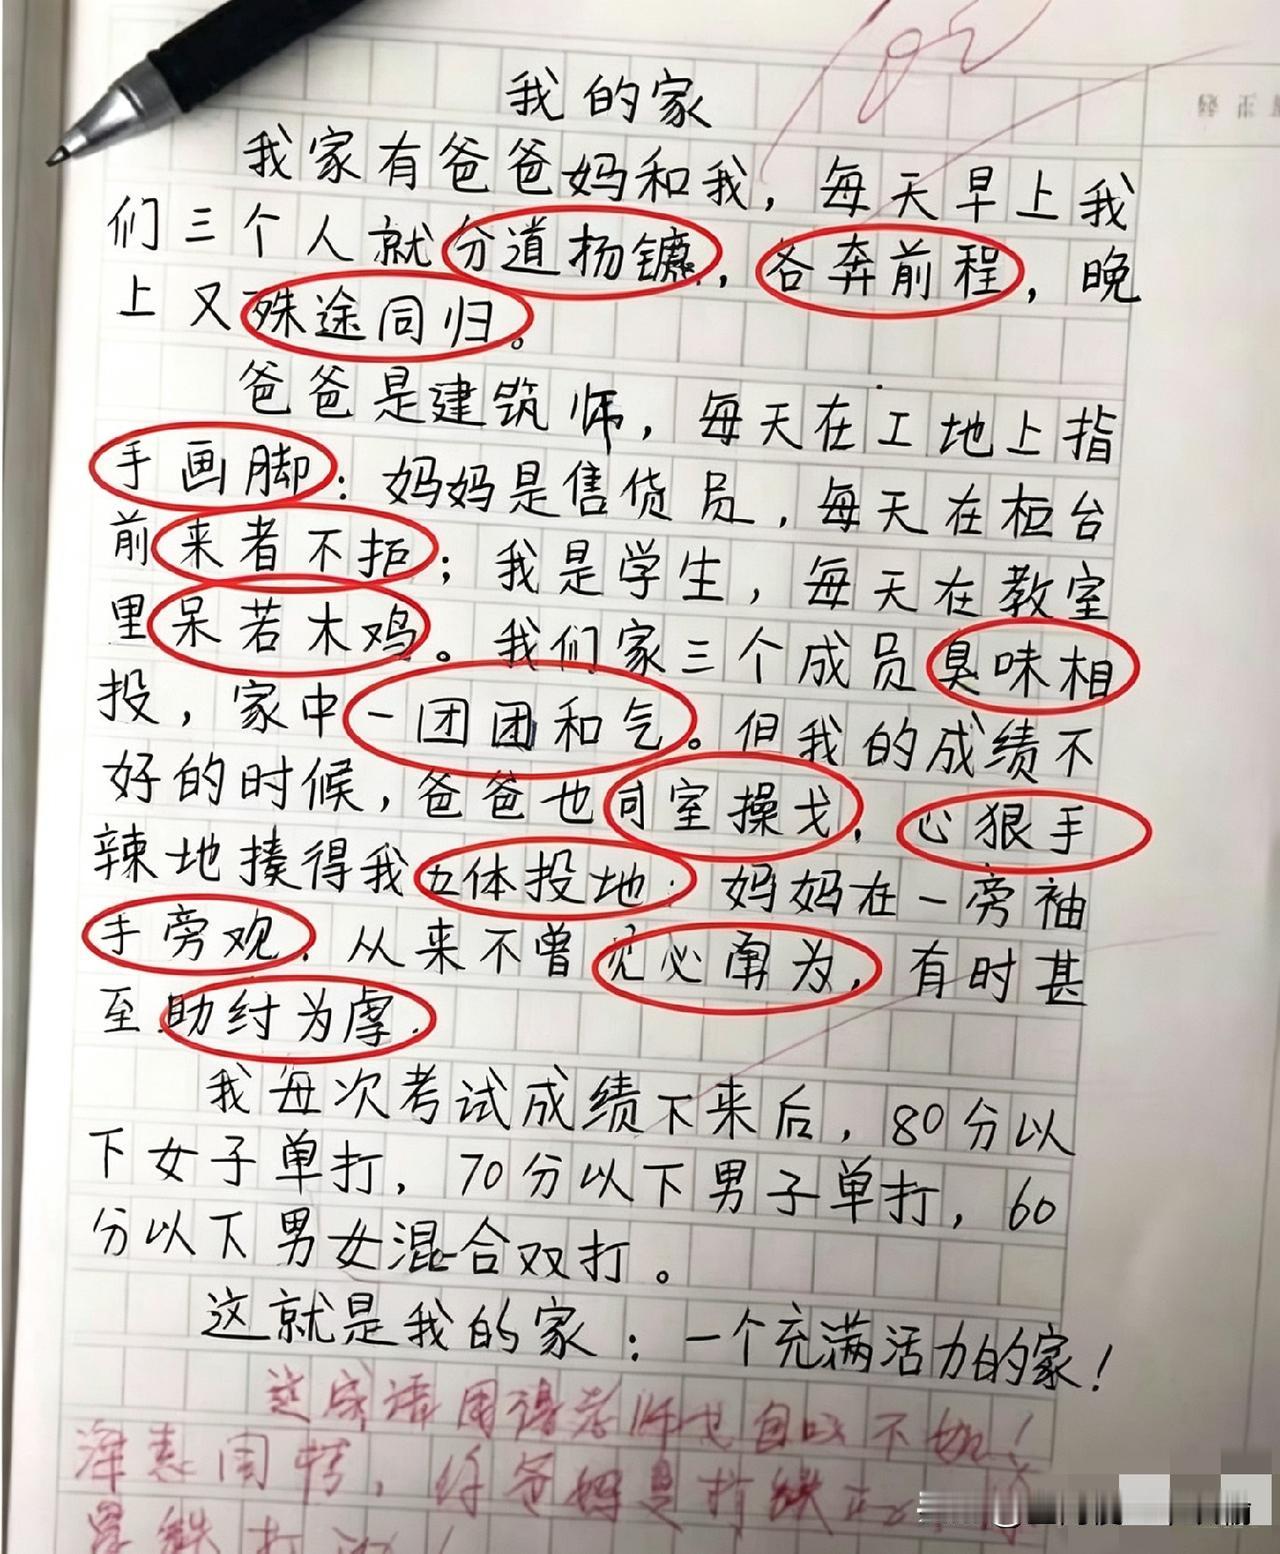 我的家
我家有爸爸妈和我，每天早上我
们三个人就分道扬镳，各奔前程，晚
上又殊途同归。
爸爸是建筑师，每天在工地上指
手画脚；妈妈是售货员，每天在柜台
前来者不拒；我是学生，每天在教室
里呆若木鸡。我们家三个成员臭味相
投，家中一团团和气。但我的成绩不
好的时候，爸爸也同室操戈，心狠手
辣地揍得我五体投地；妈妈在一旁袖
手旁观，从来不曾见必勇为，有时甚
至助纣为虐。
我每次考试成绩下来后，80分以
下女子单打，70分以下男子单打，60
分以下男女混合双打。
这就是我的家：一个充满活力的家！
这成语用得老师也自叹不如！
深表同情，你爸妈是打铁